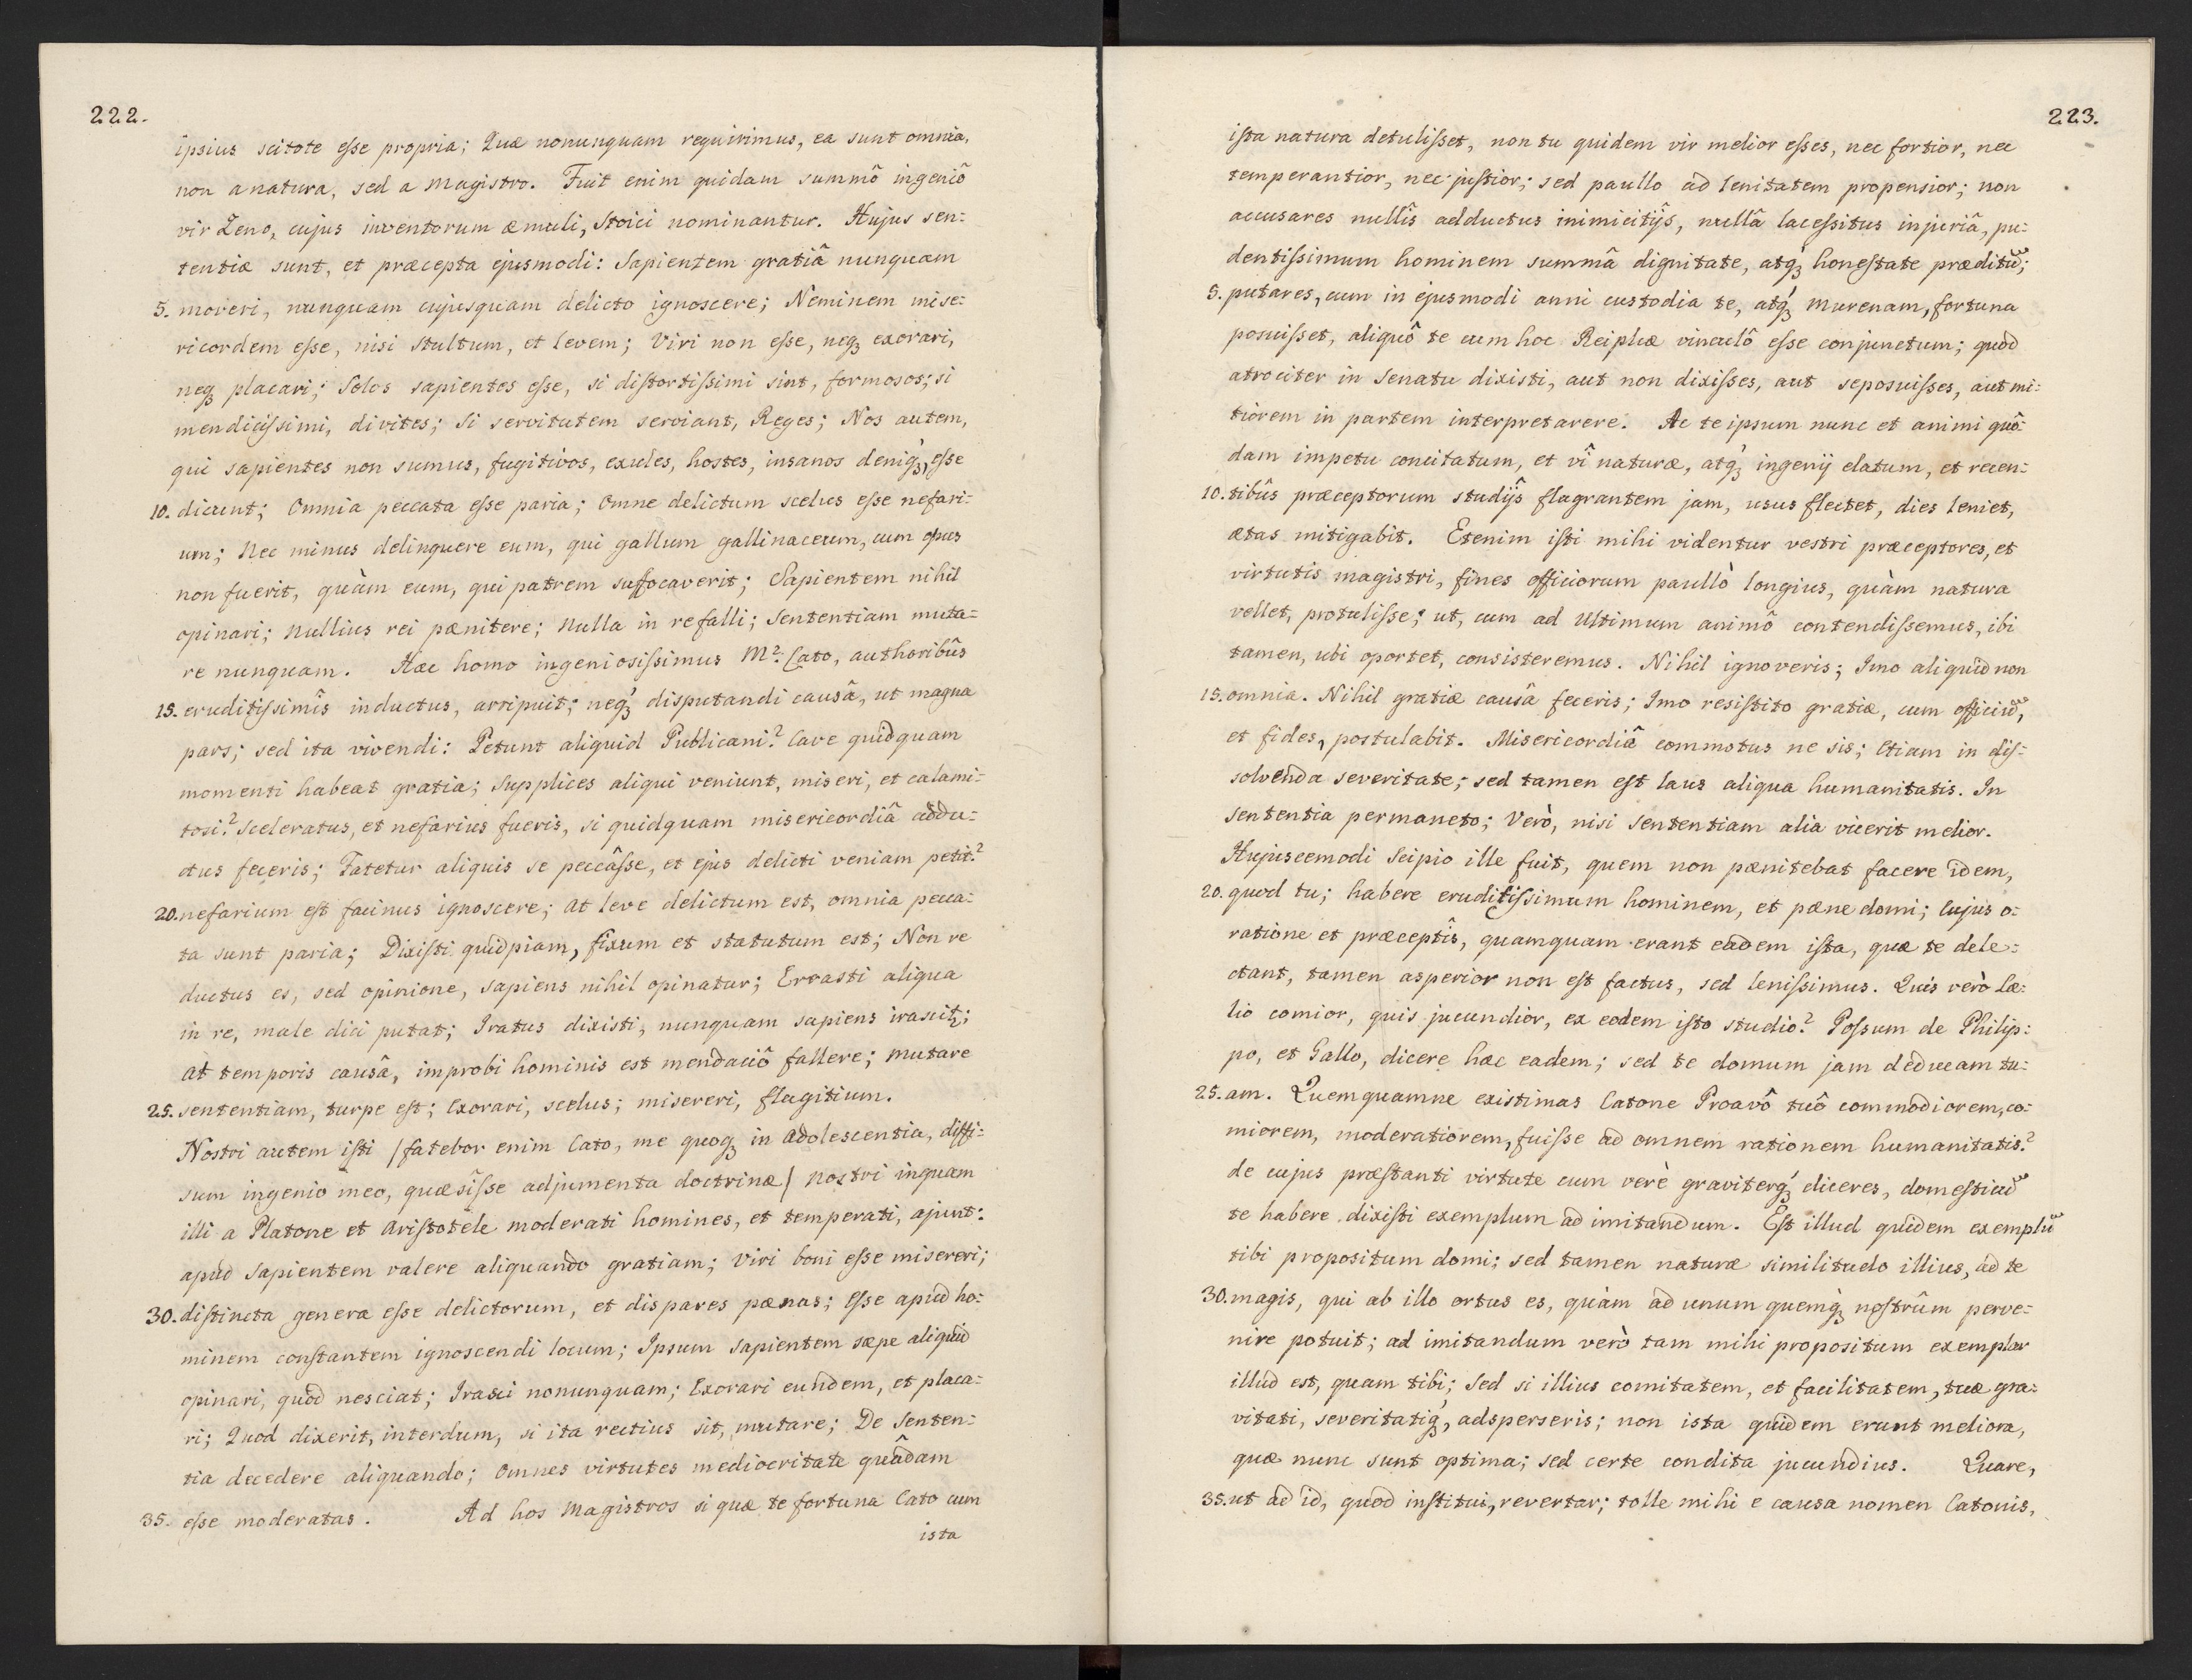 222.
ipsius scitote eſse propria; Quæ nonunquam requirimus, ea sunt omnia,
non a natura, sed a Magistro. Fuit enim quidam summô ingeniô
vir Zeno, cujus inventorum æmuli, Stoici nominantur. Hujus sen=
tentiæ sunt, et præcepta ejusmodi: Sapientem gratiâ nunquam
5. moveri, nunquam cujusquam delicto ignoscere; Neminem mise=
ricordem eſse, nisi stultum, et levem; Viri non eſse, neqȝ exorari,
neqȝ placari; Solos sapientes eſse, si diſtortiſsimi sint, formosos; si
mendiciſsimi, divites; Si servitutem serviant, Reges; Nos autem,
qui sapientes non sumus, fugitivos, exules, hostes, insanos deniqȝ, eſse
10. dicunt; Omnia peccata eſse paria; Omne delictum scelus eſse nefari=
um; Nec minus delinquere eum, qui gallum gallinaceum, cum opus
non fuerit, quàm eum, qui patrem suffocaverit; Sapientem nihil
opinari; Nullius rei pænitere; Nulla in re falli; Sententiam muta=
re nunquam. Hæc homo ingeniosiſsimus M². Cato, authoribûs
15. eruditiſsimîs inductus, arripuit; neqȝ disputandi causâ, ut magna
pars; sed ita vivendi: Petunt aliquid Publicani? Cave quidquam
momenti habeat gratia; Supplices aliqui veniunt, miseri, et calami=
tosi? Sceleratus, et nefarius fueris, si quidquam misericordiâ addu=
ctus feceris; Fatetur aliquis se peccâſse, et ejus delicti veniam petit?
20. nefarium eſt facinus ignoscere; At leve delictum est, omnia pecca=
ta sunt paria; Dixiſti quidpiam, fixum et statutum est; Non re
ductus es, sed opinione, sapiens nihil opinatur; Errasti aliqua
in re, male dici putat; Iratus dixisti, nunquam sapiens irascitꝛ;
At temporis causâ, improbi hominis est mendaciô fallere; mutare
25. sententiam, turpe eſt; Exorari, scelus; misereri, flagitium.
Nostri autem iſti /fatebor enim Cato, me quoqȝ in adolescentia, diffi=
sum ingenio meo, quæsîſse adjumenta doctrinæ/ nostri inquam
illi a Platone et Ariſtotele moderati homines, et temperati, ajunt:
apud Sapientem valere aliquando gratiam; Viri boni eſse misereri;
30. diſtincta genera eſse delictorum, et dispares pænas; Eſse apud ho=
minem conſtantem ignoscendi locum; Ipsum sapientem sæpe aliquid
opinari, quod nesciat; Irasci nonunquam; Exorari eundem, et placa=
ri; Quod dixerit, interdum, si ita rectius sit, mutare; De Senten=
tia decedere aliquando; Omnes virtutes mediocritate quâdam
35. eſse moderatas. Ad hos Magistros si quæ te fortuna Cato cum
ista
223.
iſta natura detuliſset, non tu quidem vir melior eſses, nec fortior, nec
temperantior, nec juſtior; sed paullo ad lenitatem propensior; non
accusares nullîs adductus inimicitijs, nullâ laceſsitus injuriâ, pu=
dentiſsimum hominem summâ dignitate, atqȝ honeſtate præditũ;
5. putares, cum in ejusmodi anni custodia te, atqȝ Murenam, fortuna
posuiſset, aliquô te cum hoc Reiplcæ vinculô eſse conjunctum; quod
atrociter in Senatu dixisti, aut non dixiſses, aut seposuiſses, aut mi=
tiorem in partem interpretarere. Ac te ipsum nunc et animi quô=
dam impetu concitatum, et vî naturæ, atqȝ ingenij elatum, et recen=
10. tibûs præceptorum studijs flagrantem jam, usus flectet, dies leniet,
ætas mitigabit. Etenim iſti mihi videntur vestri præceptores, et
virtutis magistri, fines officiorum paullò longius, quàm natura
vellet, protuliſse; ut, cum ad Ultimum animô contendiſsemus, ibi
tamen, ubi oportet, consisteremus. Nihil ignoveris; Imo aliquid non
15. omnia. Nihil gratiæ causâ feceris; Imo resiſtito gratiæ, cum officiũ,
et fides, postulabit. Misericordiâ commotus ne sis; Etiam in diſ=
solvenda severitate; sed tamen eſt laus aliqua humanitatis. In
sententia permaneto; Verò, nisi sententiam alia vicerit melior.
Hujuscemodi Scipio ille fuit, quem non pænitebat facere idem,
20. quod tu; habere eruditiſsimum hominem, et pæne domi; Cujus o=
ratione et præceptîs, quamquam erant eadem iſta, quæ te dele=
ctant, tamen asperior non eſt factus, sed leniſsimus. Quis verò Læ=
lio comior, quis jucundior, ex eodem iſto studio? Poſsum de Philip=
po, et Gallo, dicere hæc eadem; sed te domum jam deducam tu=
25. am. Quemquamne existimas Catone Proavô tuô commodiorem, co=
miorem, moderatiorem, fuiſse ad omnem rationem humanitatis?
de cujus præſtanti virtute cum verè graviterqȝ diceres, domeſticũ
te habere dixiſti exemplum ad imitandum. Eſt illud quidem exemplũ
tibi propositum domi; sed tamen naturæ similitudo illius, ad te
30. magis, qui ab illo ortus es, quàm ad unum quemqȝ noſtrûm perve=
nire potuit; ad imitandum verò tam mihi propositum exemplar
illud est, quam tibi; Sed si illius comitatem, et facilitatem, tuæ gra=
vitati, severitatiqȝ, adsperseris; non ista quidem erunt meliora,
quæ nunc sunt optima; sed certe condita jucundius. Quare,
35. ut ad id, quod inſtitui, revertar; tolle mihi e causa nomen Catonis,